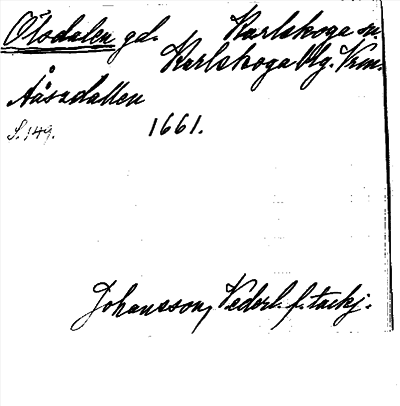 Ölsdalen gd. Karlskoga sn.
Karlskoga blg. Vrm.
Åssdallen
S. 149. 1661.
Johansson, Vederl. f. tackj.